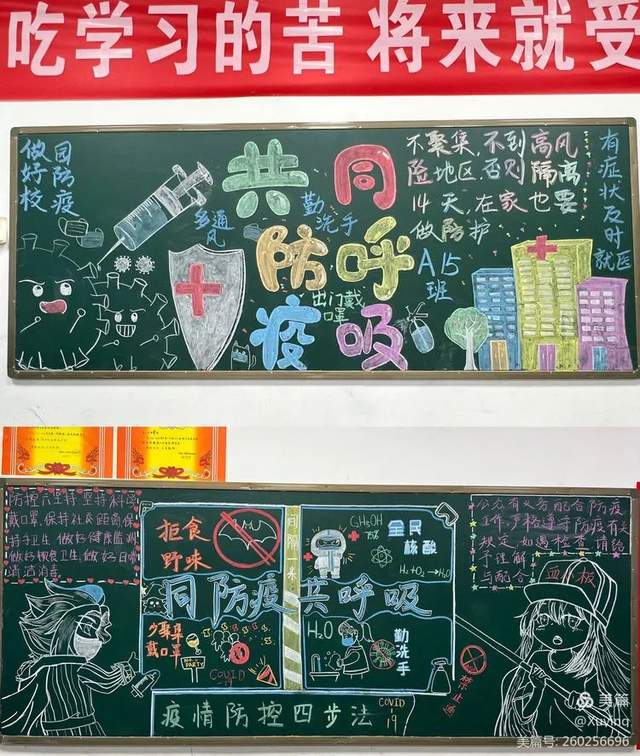 吃学习的苦 将来就受
做好校
园防疫
多通风
勤洗手
同呼吸
共防疫
出门戴口罩
A15班
不聚集,不到高风
险地区,否则隔离
14天,在家也要
做防护
有症状及时就医
防控六坚持 坚持科学
戴口罩,保持社交距离 保
持手卫生 做好健康监测
做好粮食卫生 做好日常
清洁消毒
拒食
野味
C₂H₅OH
全民
核酸
H₂+O₂→H₂O
同防疫共呼吸
少聚集
戴口罩
PARTY
COVID
19
H₂O
勤
洗手
疫情防控四步法
COVID
19
公允有义务配合防疫
工作,严格遵守防疫有关
规定,如遇检查,请给
予理解
与配合
血小板
禁止
美篇
@Xuying
美篇号: 260256696